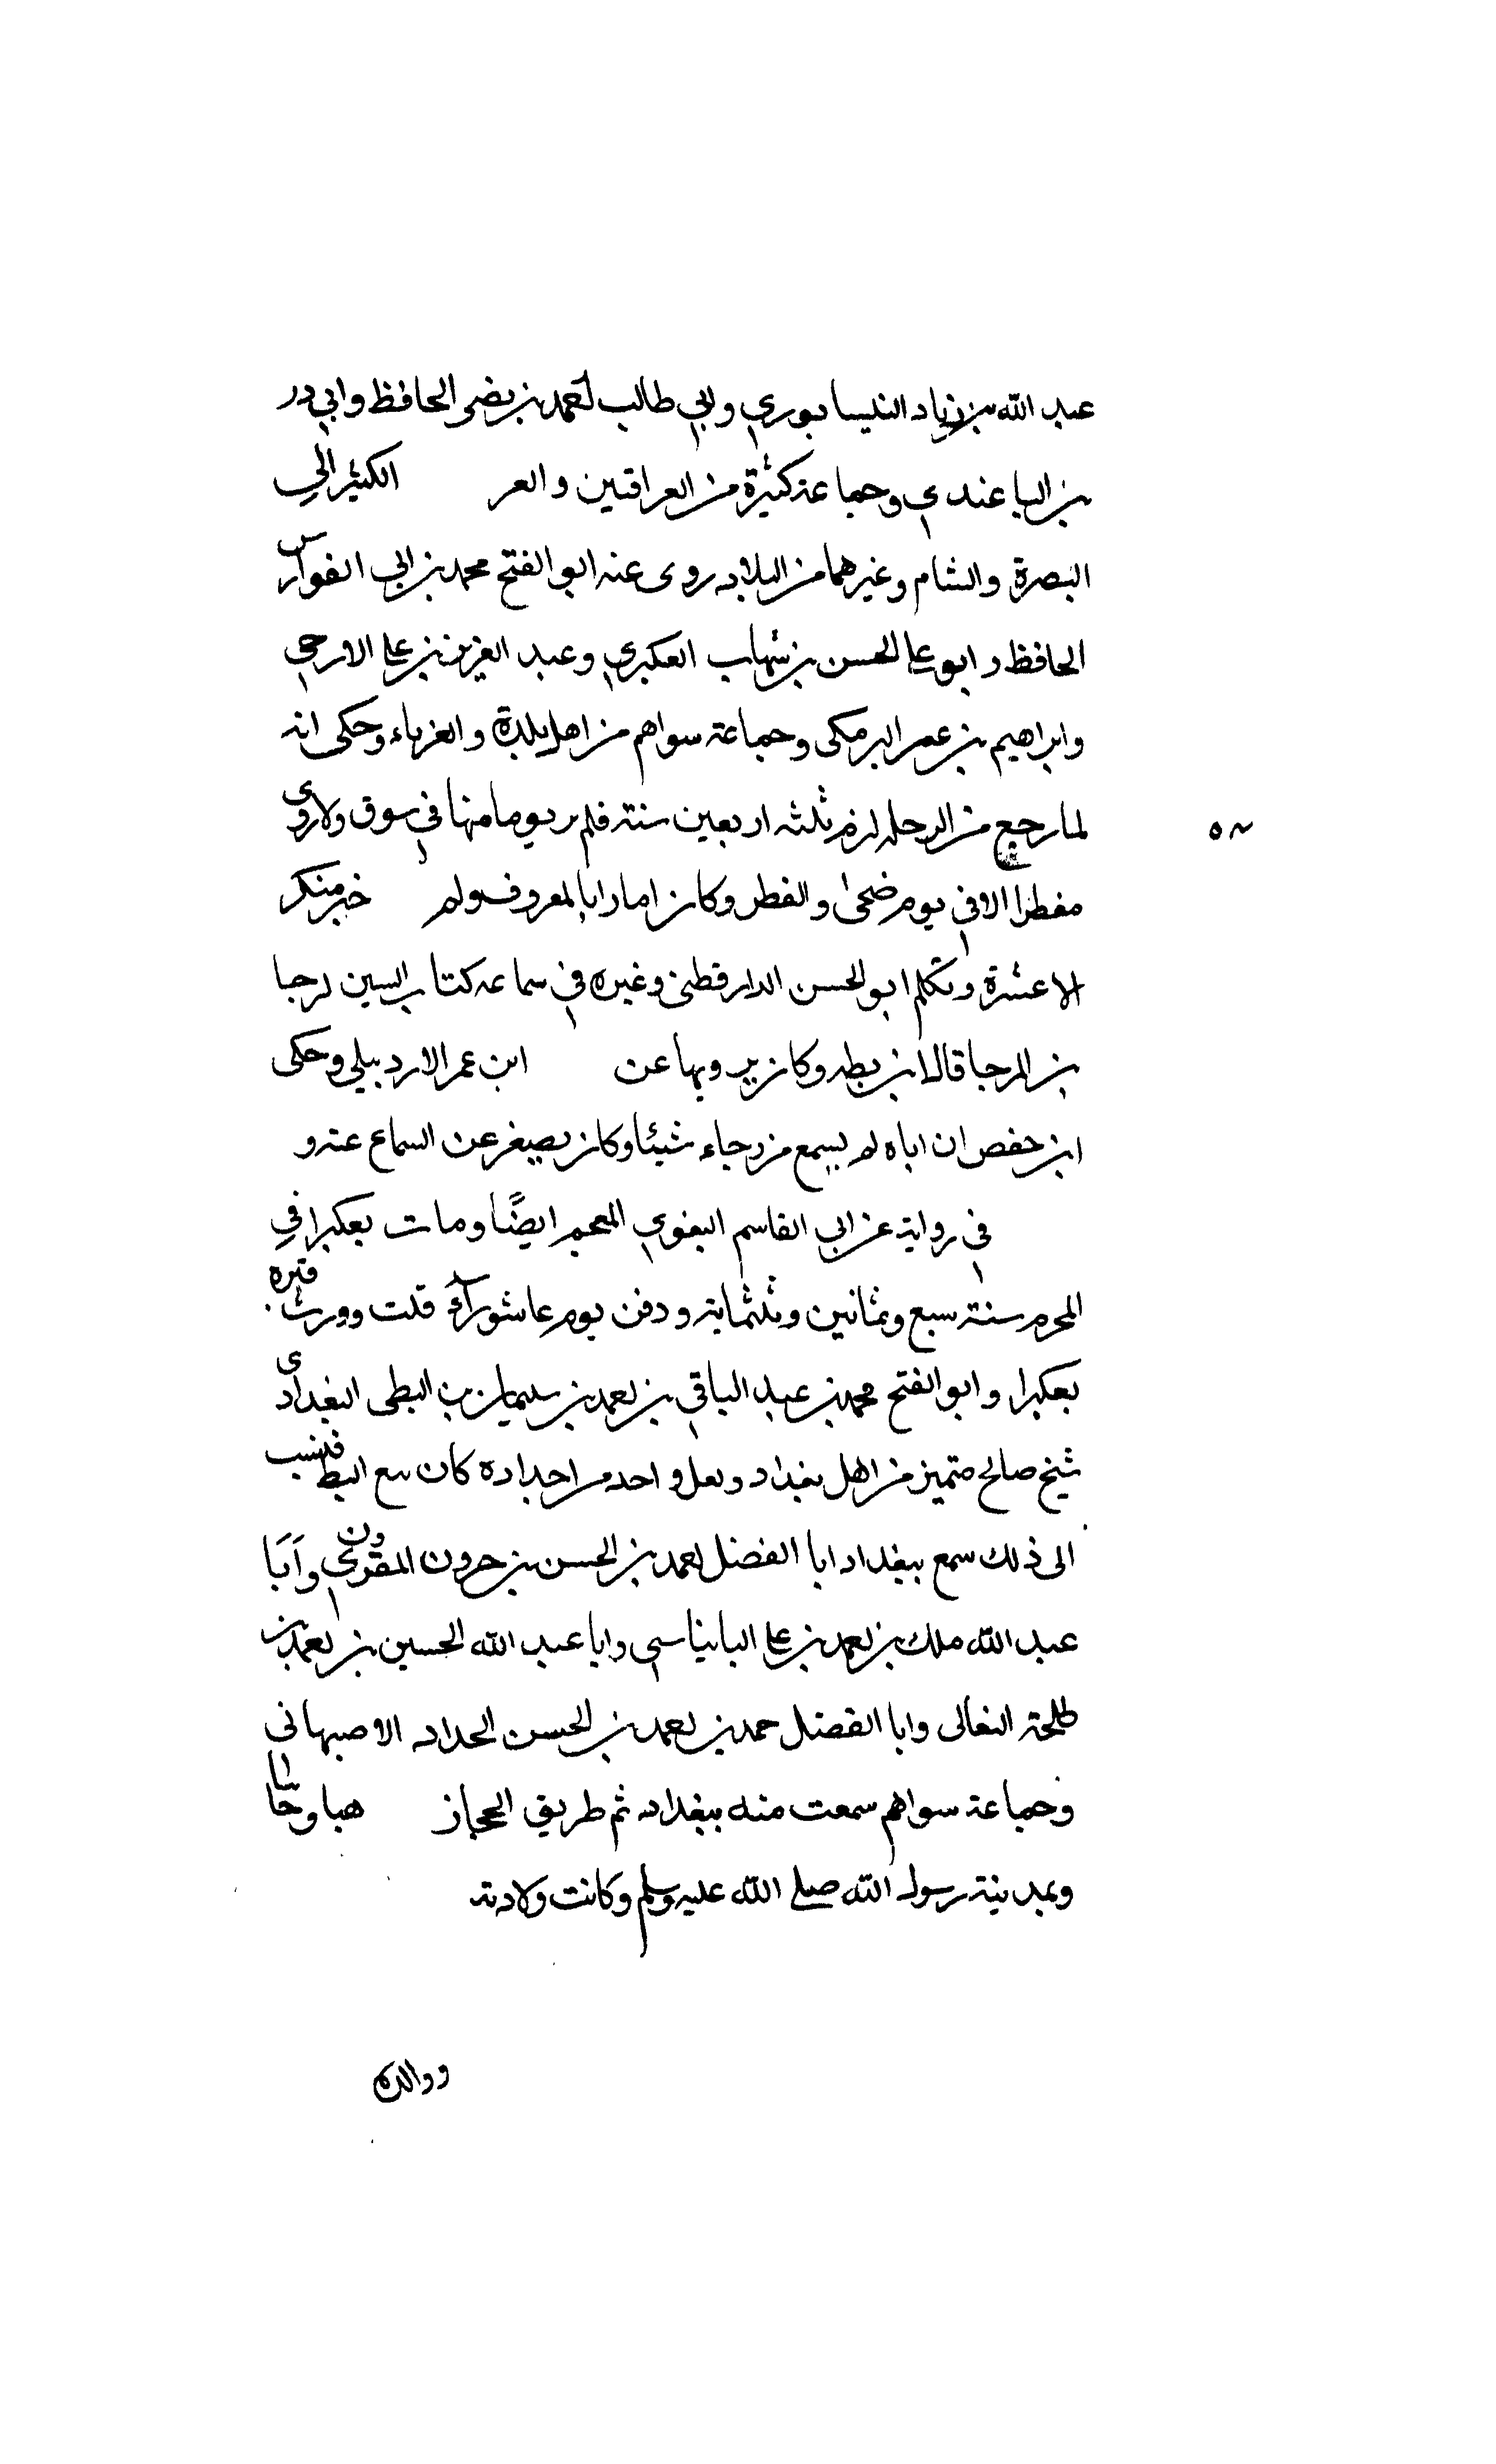 عبد الله بن زياد النيسابوري وابي طالب احمد بن نصر الحافظ وابي ذر
بن الباغندي وجماعة كثيرة من العراقيين والغر الكثير الي
البصرة والشام وغيرهما من البلاد روى عنه ابو الفتح محمد بن ابي الفوارس
الحافظ وابو علي الحسن بن شهاب العكبري وعبد العزيز بن علي الازجي
وابراهيم بن عمر البرمكى وجماعة سواهم من اهل بلدة والغرباء وحكى انه
لما رجع من الرحلة لزم ثلثه اربعين سنة فلم ير يوما منها في سوق ولا روى
مفطرا الا في يوم ضحى والفطر وكان امارا بالمعروف ولم خبر منكر
الا عشرة وتكلم ابو الحسن الدارقطنى وغيره في سماعه كتاب السين لرجا
بن المرجا قال ابن بطه وكان يرويها عن ابن عمر الاردبيلي وحكى
ابن حفص ان اباه لم يسمع من رجاء شيئا وكان يصغر عن السماع عنه و
في رواية عن ابي القاسم البغوي المعجم ايضًا ومات بعكبرا في
المحرم سنة سبع وثمانين وثلثماية ودفن يوم عاشوراء قلت وزرت قبره
بعكبرا وابو الفتح محمد بن عبد الباقي بن احمد بن سليمان بن البطى البغدادى
شيخ صالح متميز من اهل بغداد ولعل واحد من اجداده كان يبيع البط فنسب
الى ذلك سمع ببغداد ابا الفضل احمد بن الحسن بن خيرون المقري وابَا
عبد الله ملك بن احمد بن علي البانياسي وابا عبد الله الحسين بن احمد بن
طلحة النعالى وابا الفضل حمد بن احمد بن الحسن الحداد الاصبهانى
وجماعة سواهم سمعت منه ببغداد ثم طريق الحجاز
وبمدينة رسول الله صلى الله عليه وسلم وكانت ولادته
ووالده